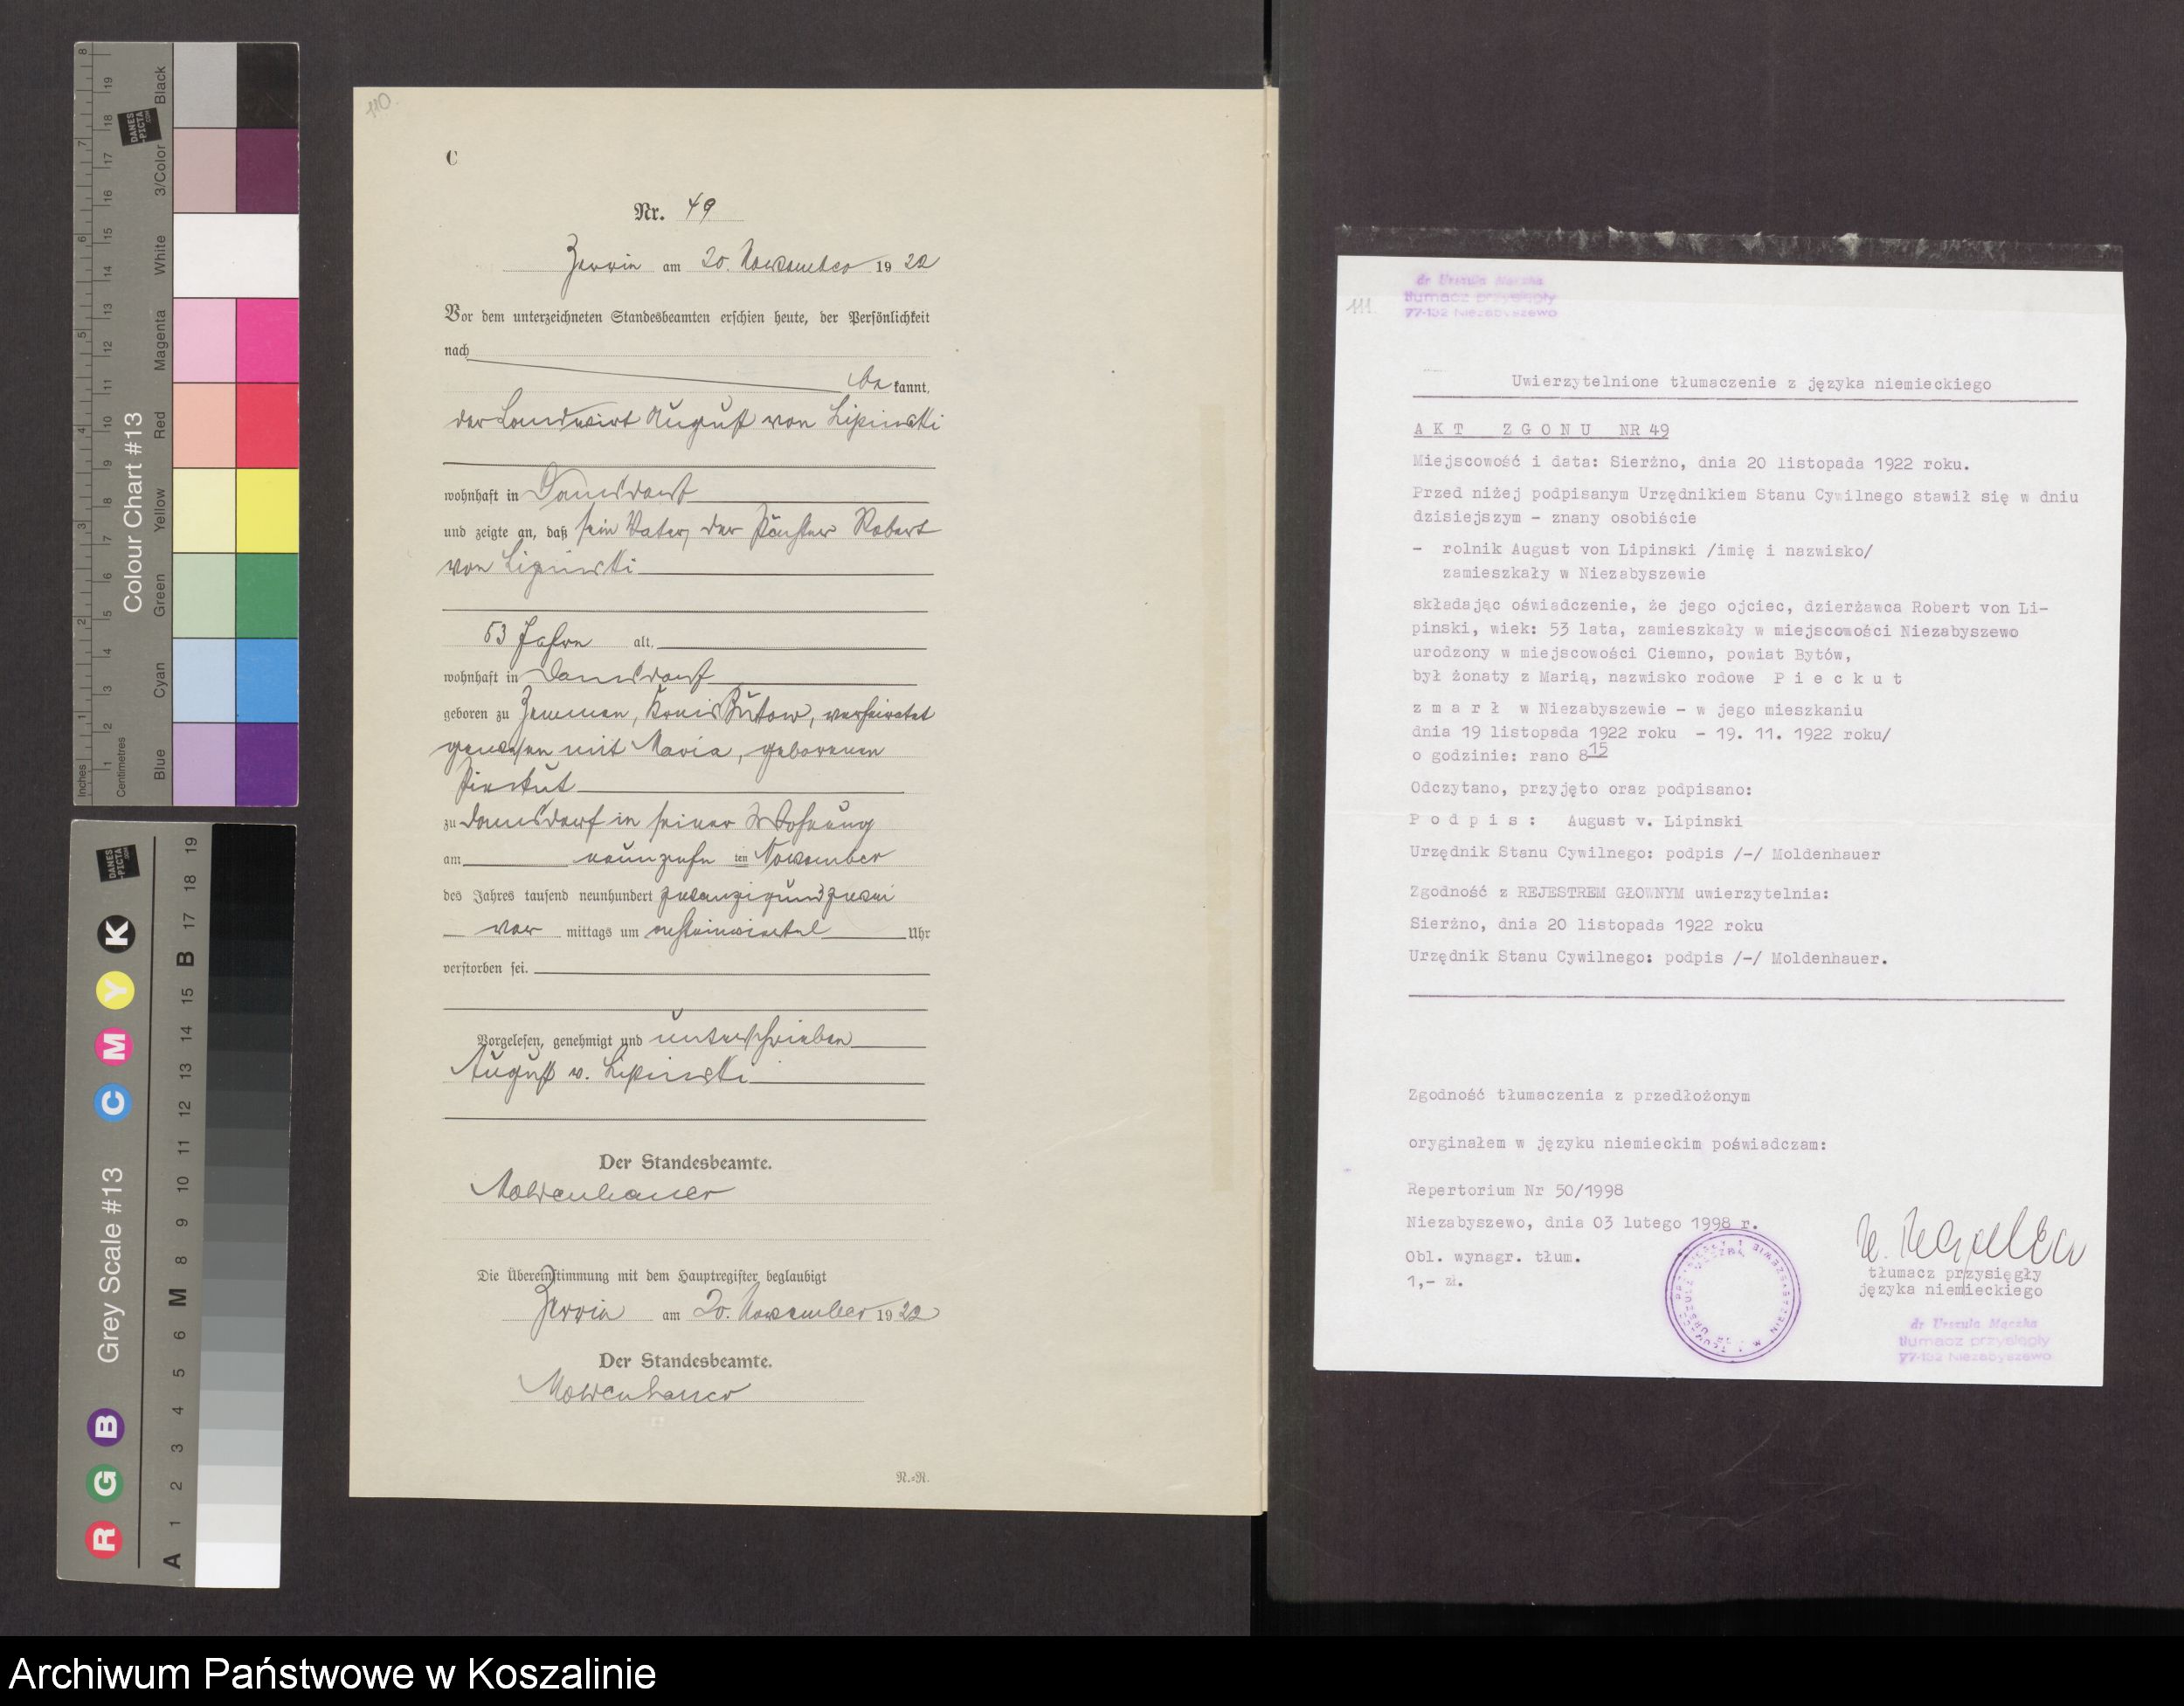 110.
C
Nr. 49
Zerrin am 20. November 1922
Vor dem unterzeichneten Standesbeamten erschien heute, der Persönlichkeit
nach
be kannt,
der Landwirt August von Lipinski
wohnhaft in Damsdorf
und zeigte an, daß sein Vater, der Pächter Robert
von Lipinski
53 Jahre alt,
wohnhaft in Damsdorf
geboren zu Zemmen, Kreis Bütow, verheiratet
gewesen mit Maria, geborenen
Pieckut
zu Damsdorf in seiner Wohnung
am neunzehn ten November
des Jahres tausend neunhundert zwanzigundzwei
vor mittags um achteinviertel Uhr
verstorben sei.
Vorgelesen, genehmigt und unterschrieben
August v. Lipinski
Der Standesbeamte.
Moldenhauer
Die Übereinstimmung mit dem Hauptregister beglaubigt
Zerrin am 20. November 1922
Der Standesbeamte.
Moldenhauer
N.=N.
dr Urszula Mączka
tłumacz przysięgły
77-132 Niezabyszewo
111
Uwierzytelnione tłumaczenie z języka niemieckiego
AKT ZGONU NR 49
Miejscowość i data: Sierżno, dnia 20 listopada 1922 roku.
Przed niżej podpisanym Urzędnikiem Stanu Cywilnego stawił się w dniu
dzisiejszym - znany osobiście
- rolnik August von Lipinski /imię i nazwisko/
zamieszkały w Niezabyszewie
składając oświadczenie, że jego ojciec, dzierżawca Robert von Li-
pinski, wiek: 53 lata, zamieszkały w miejscowości Niezabyszewo
urodzony w miejscowości Ciemno, powiat Bytów,
był żonaty z Marią, nazwisko rodowe P i e c k u t
z m a r ł w Niezabyszewie - w jego mieszkaniu
dnia 19 listopada 1922 roku - 19. 11. 1922 roku/
o godzinie: rano 8 15
Odczytano, przyjęto oraz podpisano:
P o d p i s : August v. Lipinski
Urzędnik Stanu Cywilnego: podpis /-/ Moldenhauer
Zgodność z REJESTREM GŁOWNYM uwierzytelnia:
Sierżno, dnia 20 listopada 1922 roku
Urzędnik Stanu Cywilnego: podpis /-/ Moldenhauer.
Zgodność tłumaczenia z przedłożonym
oryginałem w języku niemieckim poświadczam:
Repertorium Nr 50/1998
Niezabyszewo, dnia 03 lutego 1998 r.
Obl. wynagr. tłum.
1,- zł.
tłumacz przysięgły
języka niemieckiego
dr Urszula Mączka
tłumacz przysięgły
77-132 Niezabyszewo
Colour Chart #13
Inches 1 2 3 4 5 6 7 8
Centimetres 1 2 3 4 5 6 7 8 9 10 11 12 13 14 15 16 17 18 19
Blue Cyan Green Yellow Red Magenta White 3/Color Black
DANES
-PICTA
.COM
Grey Scale #13
R G B C M Y K
A 1 2 3 4 5 6 M 8 9 10 11 12 13 14 15 B 17 18 19
DANES
-PICTA
.COM
Archiwum Państwowe w Koszalinie